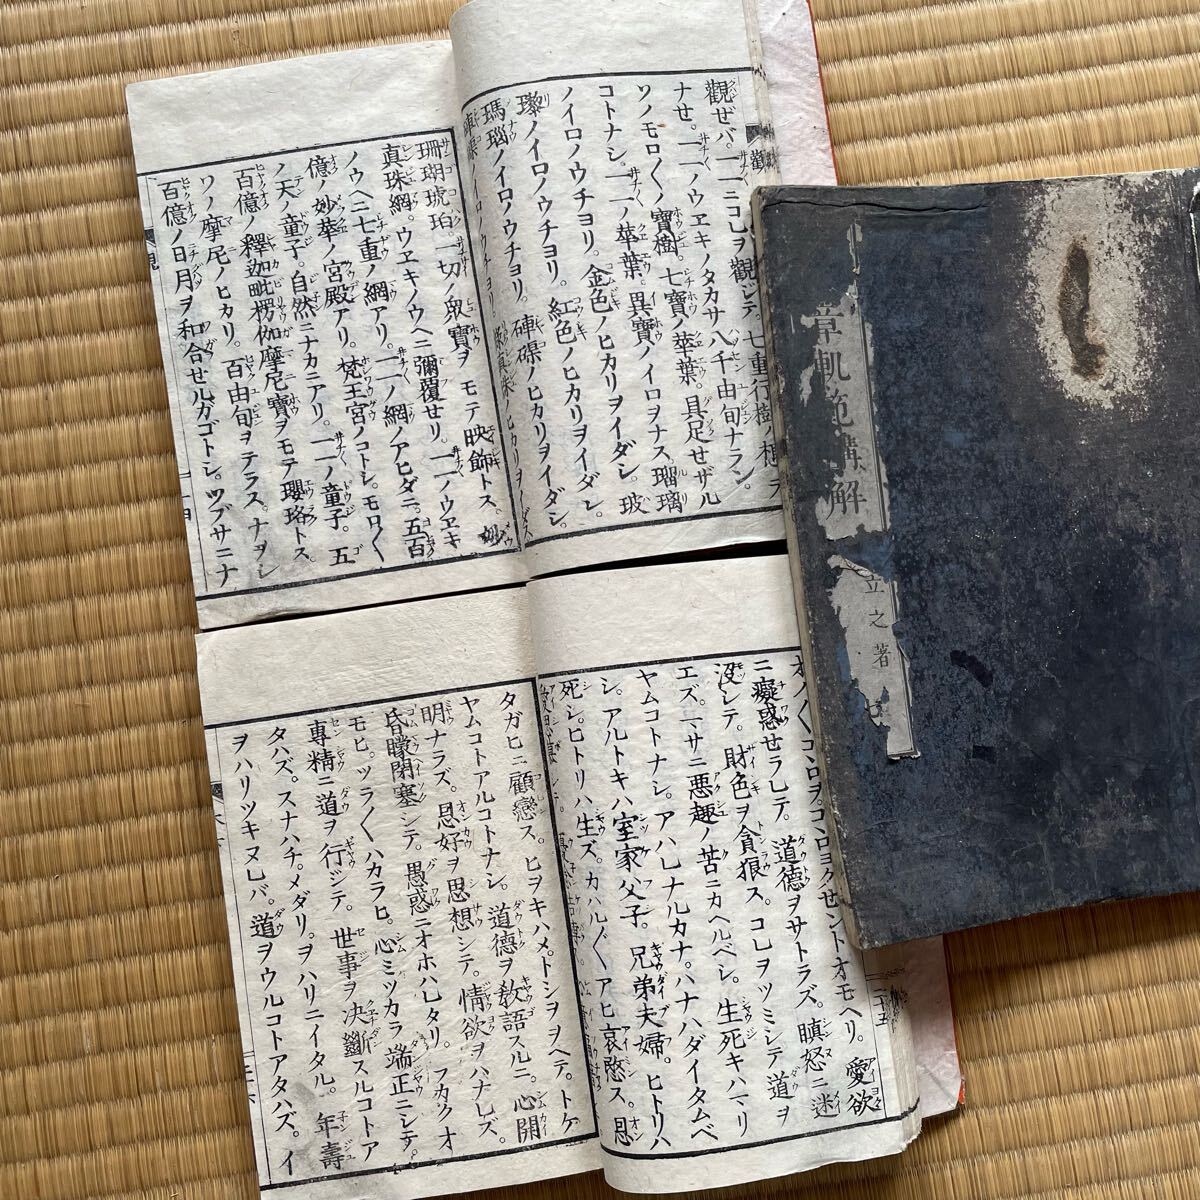 觀ゼバ。一一ニコレヲ觀ジテ七重行樹ノ想ヲ
ナセ。一一ノウヱキノタカサ八千由旬ナラン。
ソノモロ〱ノ寶樹。七寶ノ華葉。具足セザル
コトナシ。一一ノ華葉。異寶ノイロヲナス。瑠璃
ノイロノウチヨリ。金色ノヒカリヲイダシ。玻
瓈ノイロノウチヨリ。紅色ノヒカリヲイダシ。
瑪瑙ノイロノウチヨリ。硨磲ノヒカリヲイダシ。
硨磲ノイロノウチヨリ。綠真珠ノヒカリヲイダス
珊瑚琥珀一切ノ眾寶ヲモテ映飾トス。妙
真珠網。ウヱキノウヘニ彌覆セリ。一一ノウヱキ
ノウヘニ七重ノ網アリ。一一ノ網ノアヒダニ。五百
億ノ妙華ノ宮殿アリ。梵王宮ノコトシ。モロ〱
ノ天ノ童子。自然ニナカニアリ。一一ノ童子。五
百億ノ釋迦毗楞伽摩尼寶ヲモテ瓔珞トス。
ソノ摩尼ノヒカリ。百由旬ヲテラス。ナヲシ
百億ノ日月ヲ和合セルガゴトシ。ツブサニナ
觀
章軌範講解
立之著
オノ〱コヽロヲ。コヽロヨクセントオモヘリ。愛欲
ニ癡惑セラレテ。道德ヲサトラズ。瞋怒ニ迷
沒シテ。財色ヲ貪狼ス。コレヲツミシテ道ヲ
エズ。マサニ悪趣ノ苦ニカヘルベシ。生死キハマリ
ヤムコトナシ。アハレナルカナ。ハナハダイタムベ
シ。アルトキハ室家父子。兄弟夫婦。ヒトリハ
死シ。ヒトリハ生ズ。カハル〲アヒ哀愍ス。恩
タガヒニ顧戀ス。ヒヲキハメ。トシヲヲヘテ。トケ
ヤムコトアルコトナシ。道德ヲ敎語スルニ。心開
明ナラズ。恩好ヲ思想シテ。情欲ヲハナレズ。
昏曚閉塞シテ。愚惑ニオホハレタリ。フカクオ
モヒ。ツラ〱ハカラヒ。心ミヅカラ端正ニシテ。
專精ニ道ヲ行ジテ。世事ヲ决斷スルコトア
タハズ。スナハチ。メグリ。ヲハリニイタル。年壽
ヲハリツキヌレバ。道ヲウルコトアタハズ。イ
二十五